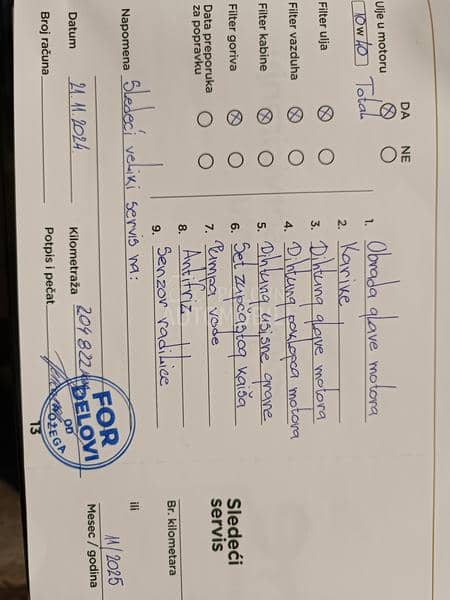 Ulje u motoru
10 w 40 Total
DA NE
Filter ulja
Filter vazduha
Filter kabine
Filter goriva
Data preporuka
za popravku
Napomena Sledeći veliki servis na:
Datum 21.11.2024. Kilometraža 204822
Broj računa Potpis i pečat
1. Obrada glave motora
2. Karike
3. Dihtung glave motora
4. Dihtung poklopca motora
5. Dihtung usisne grane
6. Set zupčastog kaiša
7. Pumpa vode
8. Antifriz
9. Senzor radilice
FOR
DELOVI
DD
POŽEGA
13
Sledeći
servis
Br. kilometara
ili
11/2025
Mesec / godina